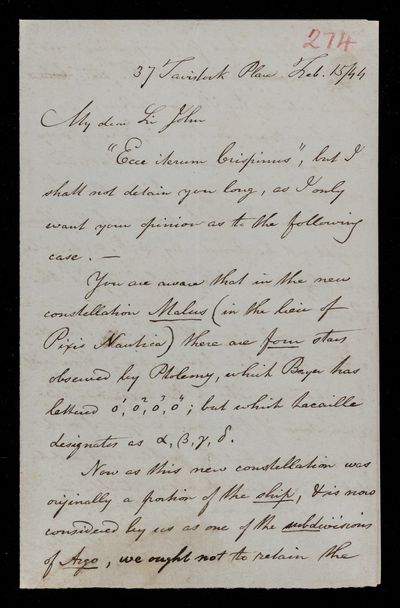 274
37 Tavistock Place Feb. 15/44
My dear Sir John
"Ecce iterum Crispinus", but I
shall not detain you long, as I only
want your opinion as to the following
case. —
You are aware that in the new
constellation Malus (in the lieu of
Pixis Nautica) there are four stars
observed by Ptolemy, which Bayer has
lettered o¹, o², o³, o⁴; but which Lacaille
designates as α, β, γ, δ.
Now as this new constellation was
originally a portion of the ship, & is now
considered by us as one of the subdivisions
of Argo, we ought not to retain the